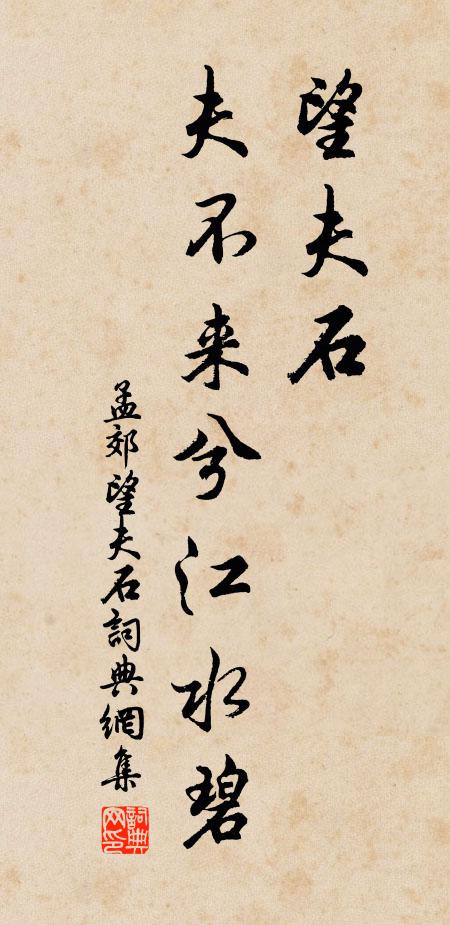 望夫石
夫不来兮江水碧
孟郊望夫石詞典網集
詞典
网印